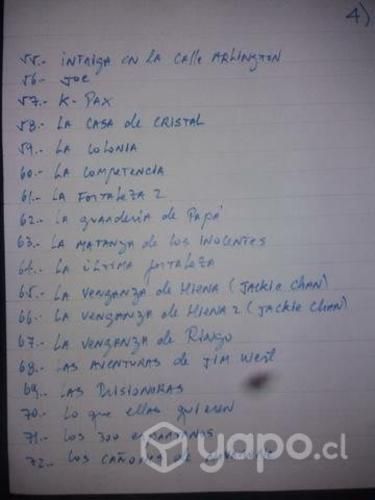 4)
55.- INTRIGA EN LA CALLE ARLINGTON
56.- JOE
57.- K-PAX
58.- LA CASA de CRISTAL
59.- LA COLONIA
60.- LA COMPETENCIA
61.- LA FORTALEZA 2
62.- La guarderia de Papá
63.- LA MATANZA de LOS INOCENTES
64.- LA ULTIMA fortaleza
65.- LA VENGANZA de HIENA (JACKIE CHAN)
66.- LA VENGANZA de HIENA 2 (JACKIE CHAN)
67.- LA VENGANZA de Ringo
68.- LAS AVENTURAS de JIM West
69.- LAS PRISIONERAS
70.- Lo que ellas quieren
71.- LOS 300 ESPARTANOS
72.- LOS CAÑONES de
yapo.cl